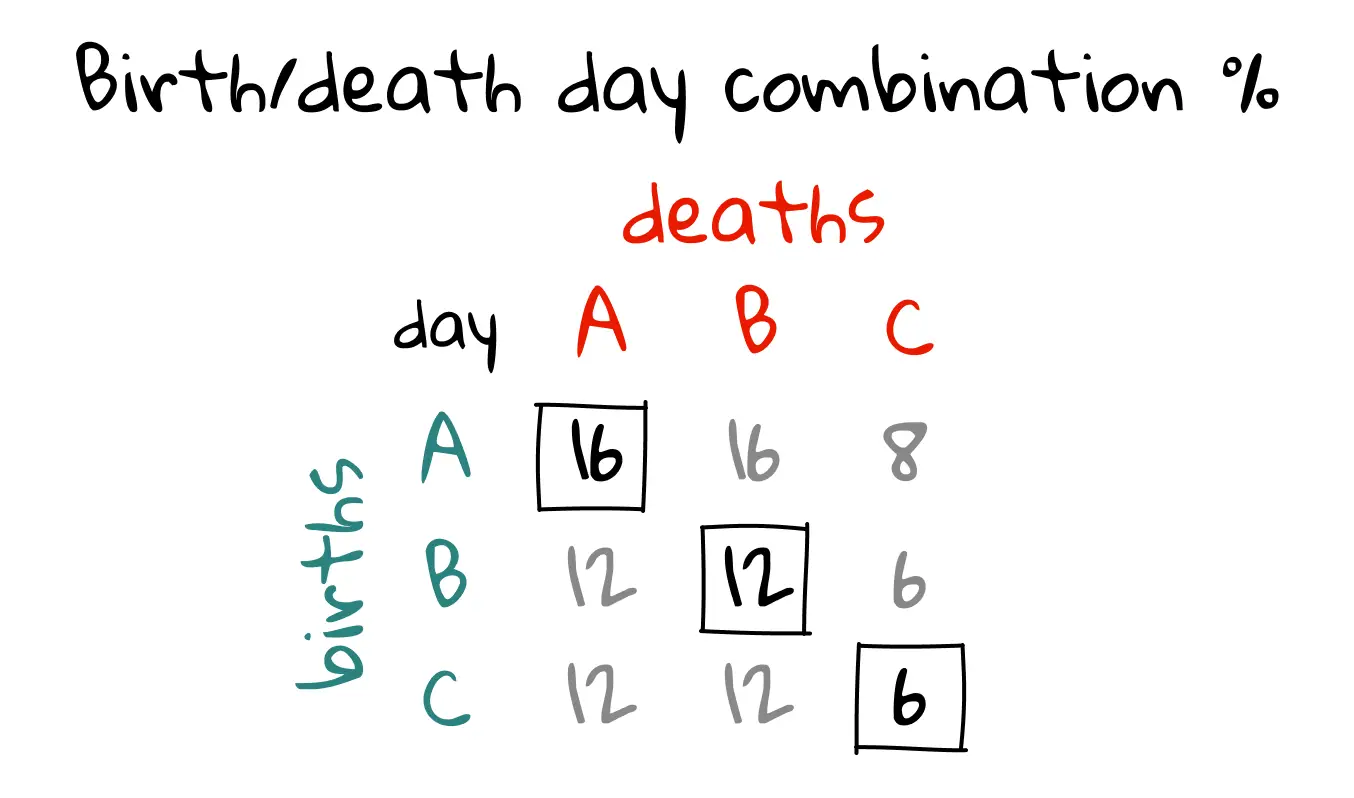 Birth/death day combination %
deaths
day A B C
births
A 16 16 8
B 12 12 6
C 12 12 6